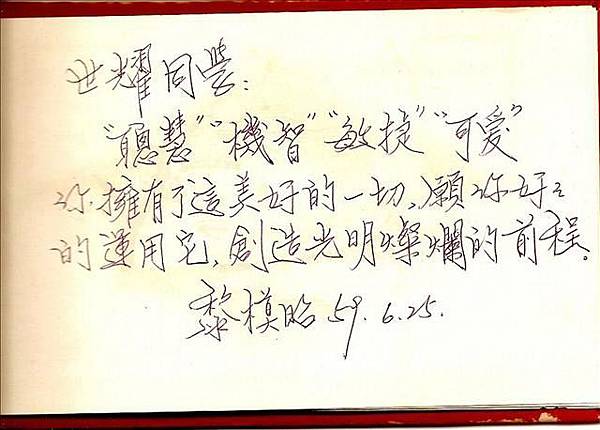 世耀同學：
"聰慧""機智""敏捷""可爱"
你擁有了這美好的一切，願你好々
的運用它，創造光明燦爛的前程。
黎模昭 59.6.25.